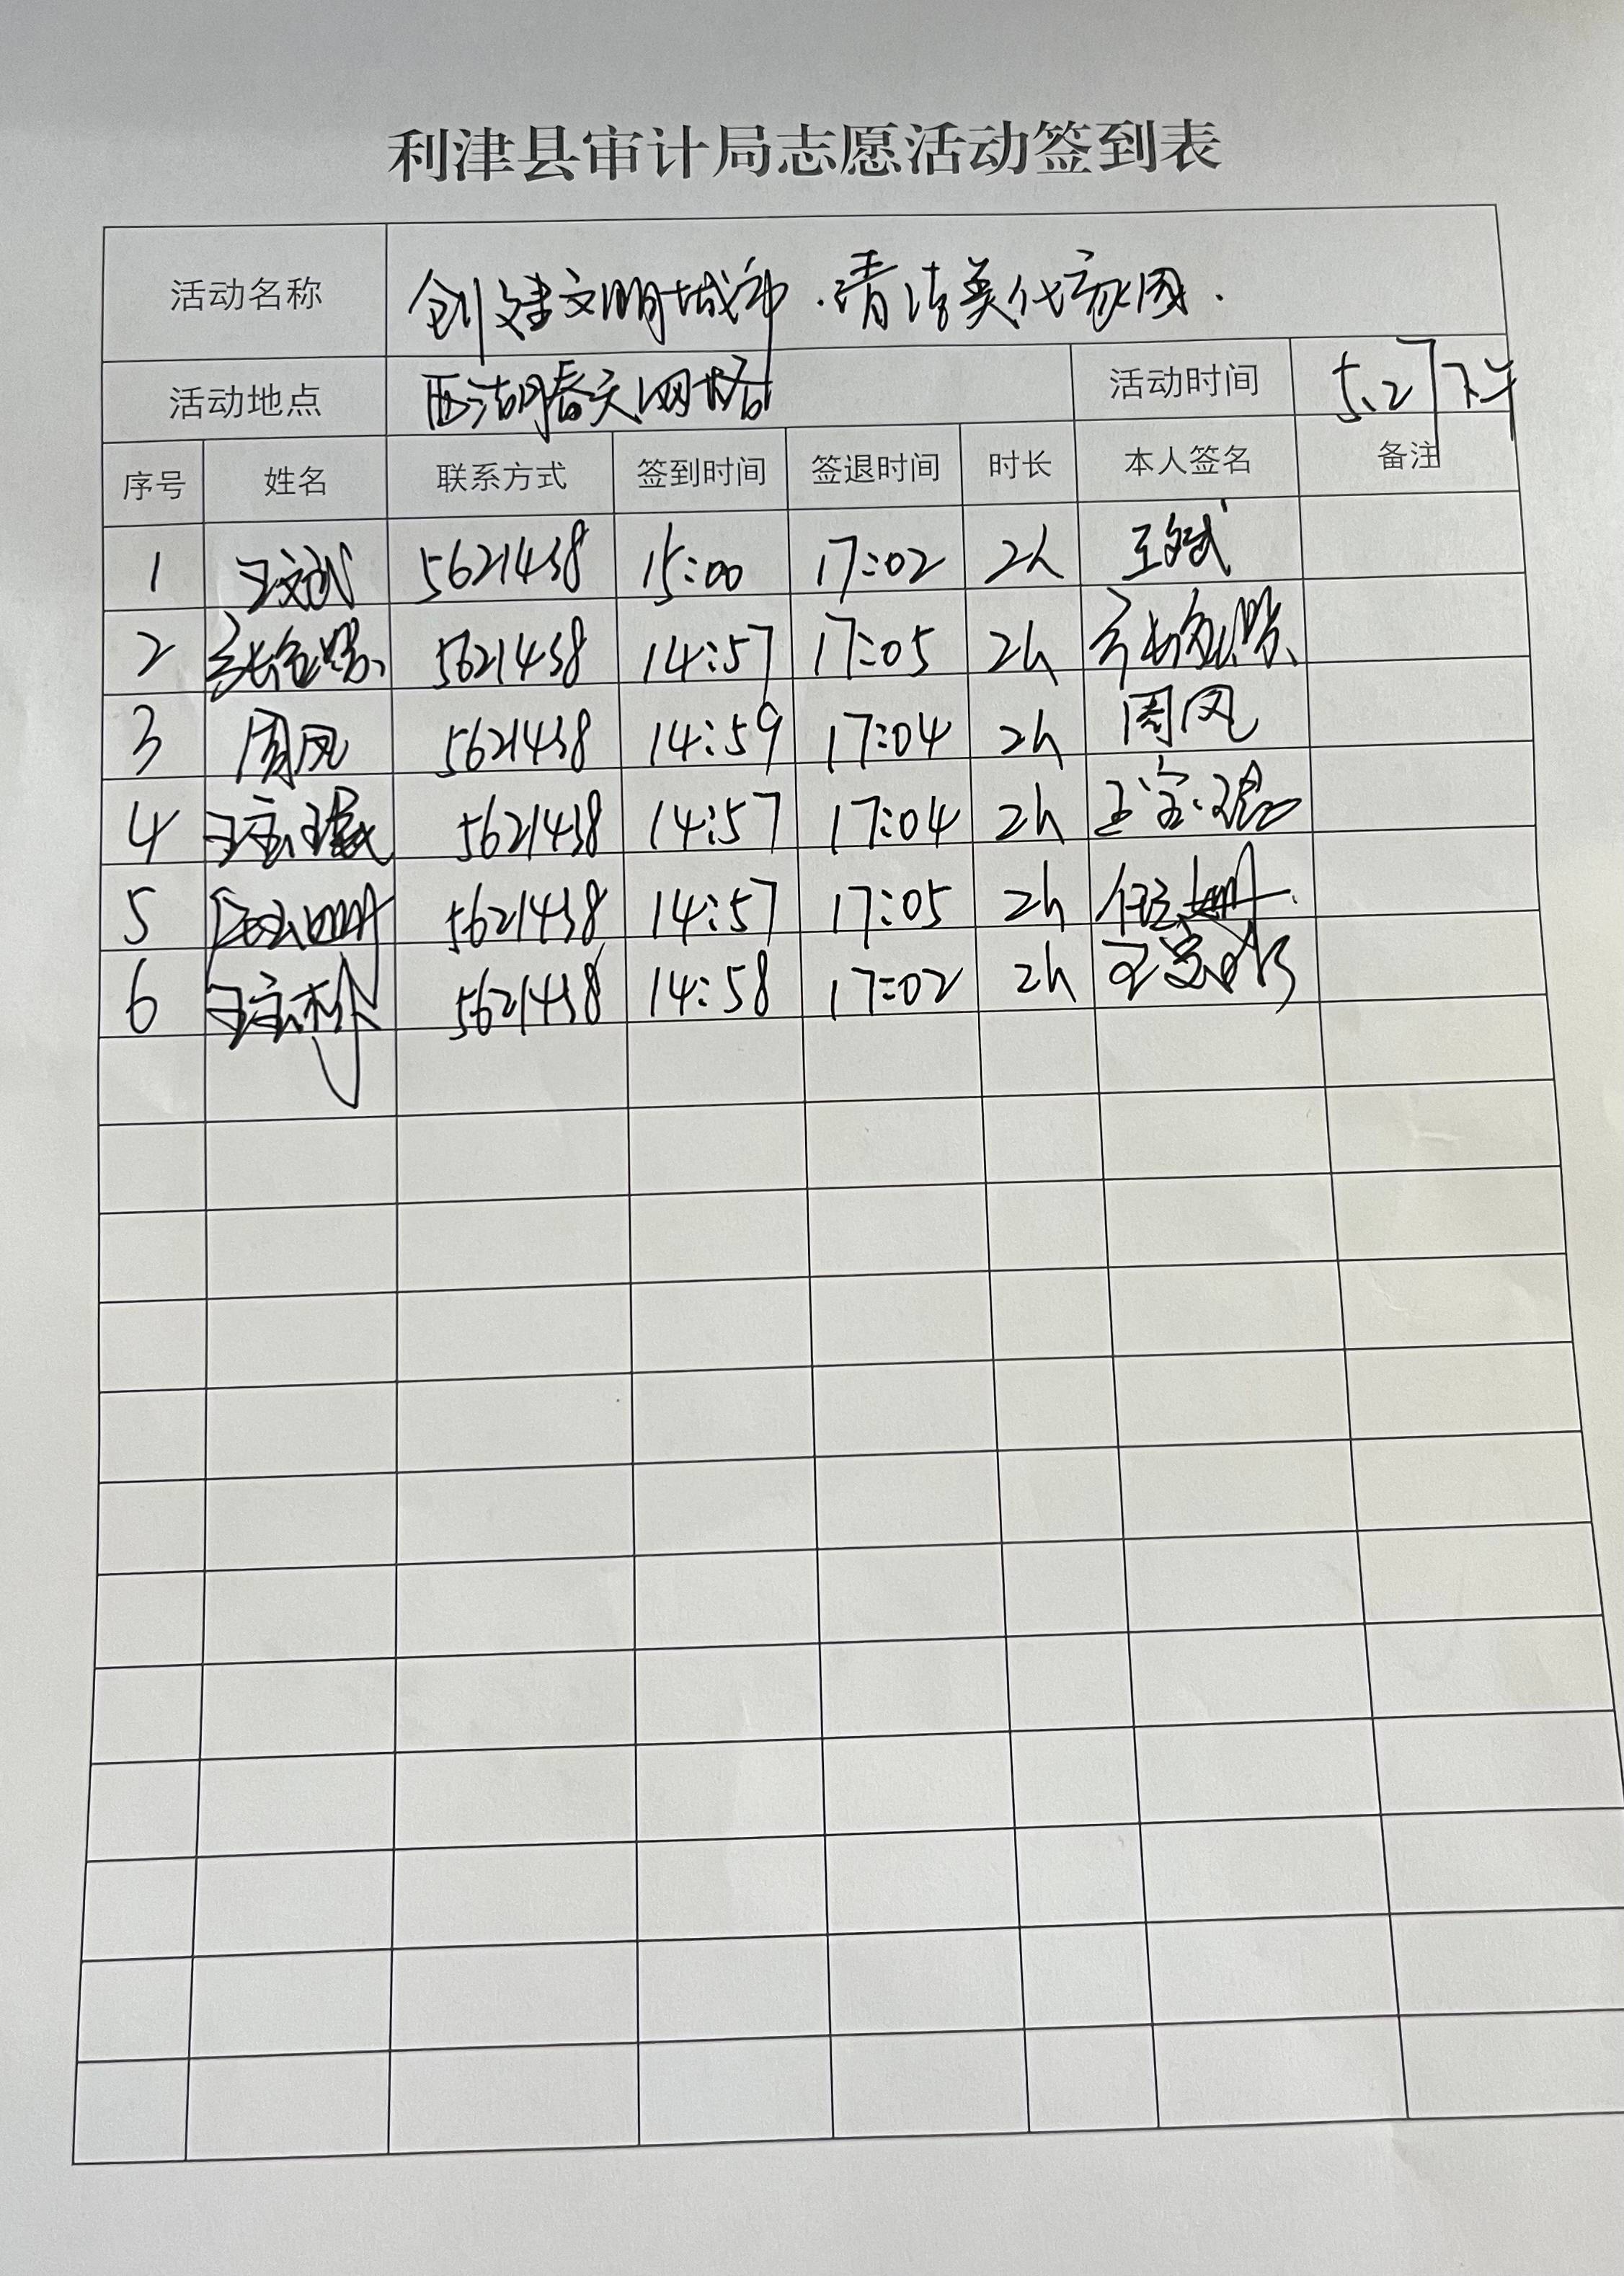 利津县审计局志愿活动签到表
活动名称 创建文明城市.清洁美化家园.
活动地点 西湖春天网格 活动时间 5.27下午
序号 姓名 联系方式 签到时间 签退时间 时长 本人签名 备注
1 王文斌 5621438 15:00 17:02 2h 王文斌
2 5621438 14:57 17:05 2h
3 周风 5621438 14:59 17:04 2h 周风
4 5621438 14:57 17:04 2h
5 5621438 14:57 17:05 2h
6 5621438 14:58 17:02 2h